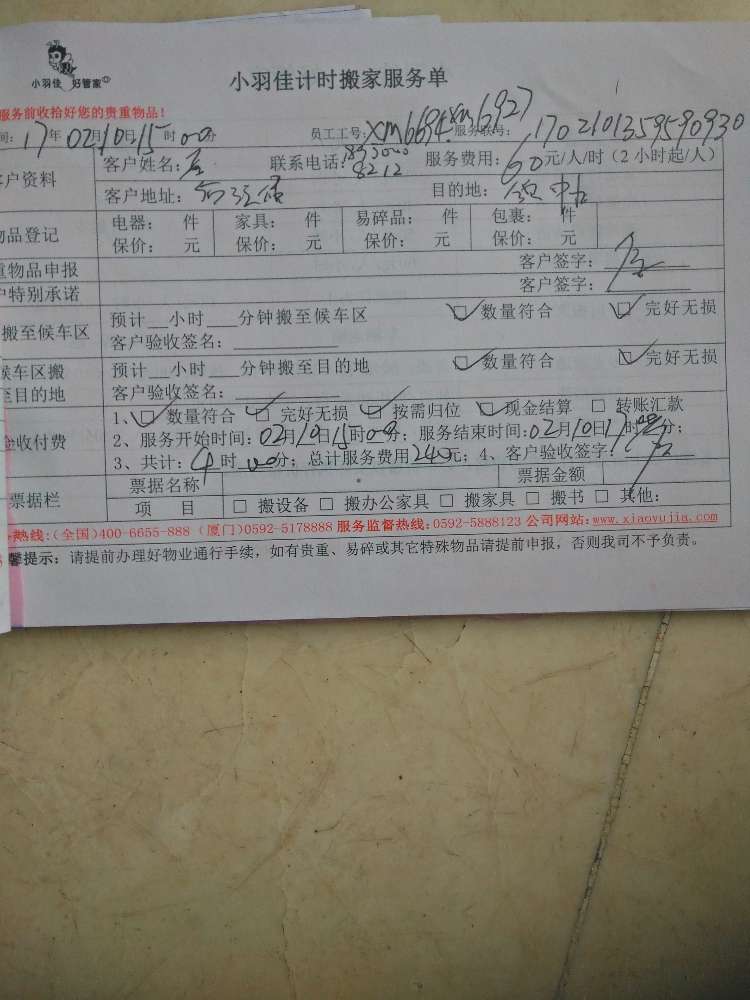 小羽佳 好管家
小羽佳计时搬家服务单
服务前收拾好您的贵重物品！
间：17年02月10日15时00分 员工工号：XM6694 XM6927 服务联号：1702101359590930
客户资料 客户姓名： 联系电话： 8212 服务费用：60元/人/时（2小时起/人）
客户地址： 目的地：
物品登记 电器： 件 家具： 件 易碎品： 件 包裹： 件
保价： 元 保价： 元 保价： 元 保价： 元
重物品申报 客户签字：
户特别承诺 客户签字：
搬至候车区 预计__小时___分钟搬至候车区 ☑数量符合 ☑完好无损
客户验收签名：
候车区搬 预计__小时___分钟搬至目的地 ☑数量符合 ☑完好无损
至目的地 客户验收签名：
金收付费 1、☑数量符合 ☑完好无损 ☑按需归位 ☑现金结算 □转账汇款
2、服务开始时间：02月10日15时00分；服务结束时间：02月10日17时 分；
3、共计：4时00分；总计服务费用240元；4、客户验收签字：
票据栏 票据名称 票据金额
项 目 □搬设备 □搬办公家具 □搬家具 □搬书 □其他：
热线：(全国)400-6655-888 (厦门)0592-5178888 服务监督热线：0592-5888123 公司网站：www.xiaoyujia.com
馨提示：请提前办理好物业通行手续，如有贵重、易碎或其它特殊物品请提前申报，否则我司不予负责。